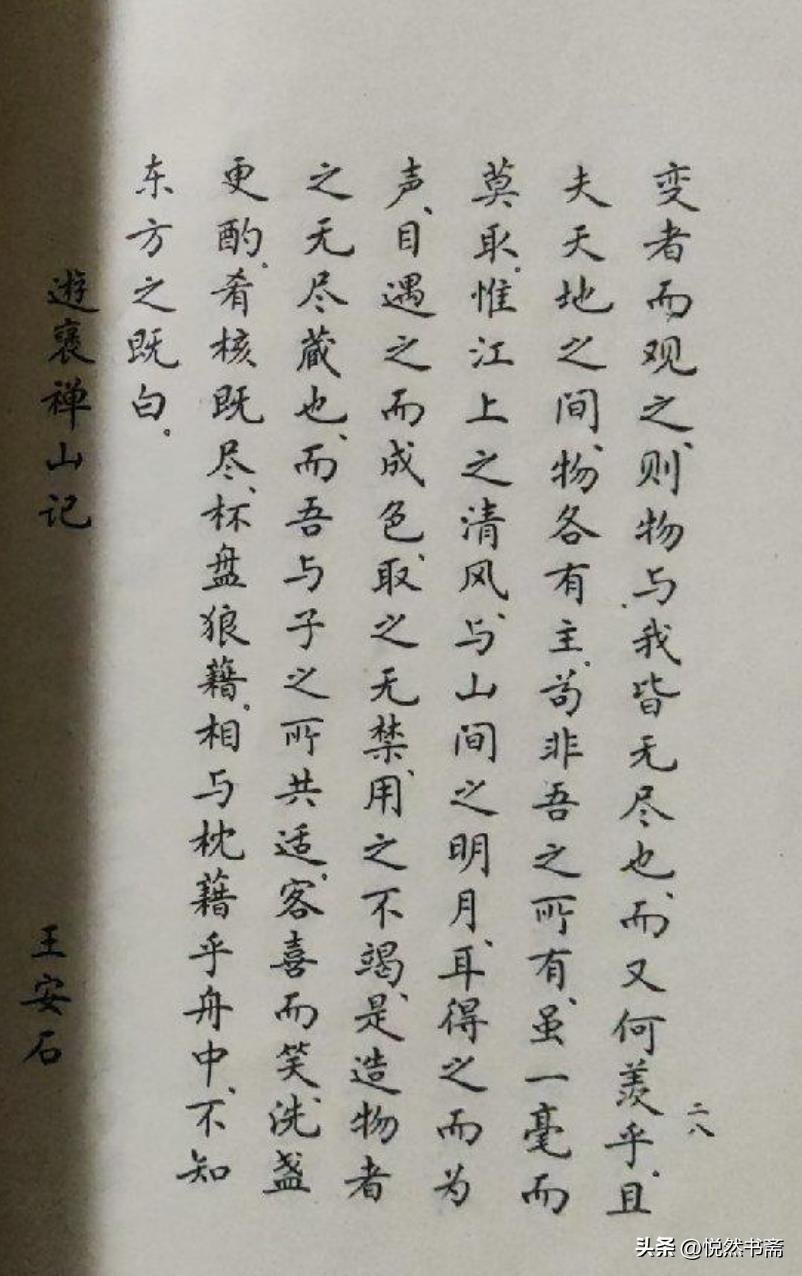 变者而观之、则物与我皆无尽也、而又何羡乎、且
夫天地之间、物各有主。苟非吾之所有、虽一毫而
莫取。惟江上之清风、与山间之明月、耳得之而为
声、目遇之而成色、取之无禁、用之不竭、是造物者
之无尽藏也、而吾与子之所共适、客喜而笑、洗盏
更酌、肴核既尽、杯盘狼藉。相与枕藉乎舟中、不知
东方之既白。
遊褒禅山记 王安石
二八
头条 @悦然书斋